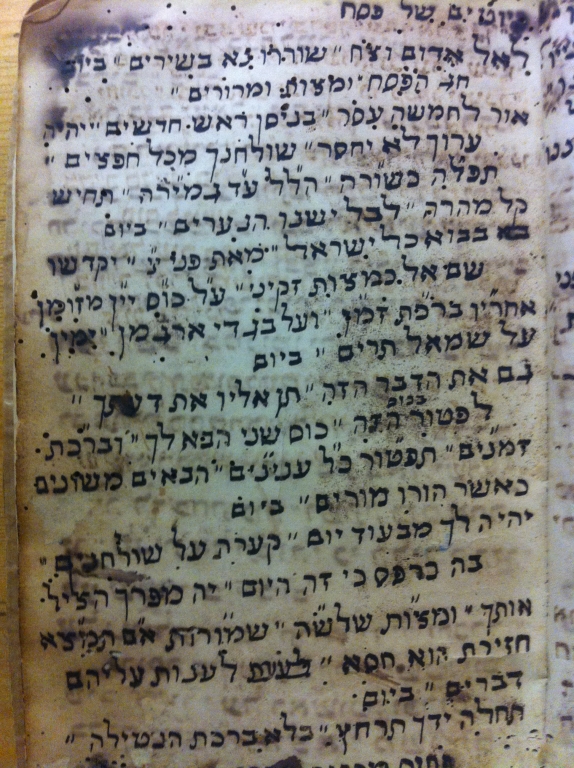 פיוטים של פסח
לאל אדום וצח ״ שוררו נא בשירים ״ ביום
חג הפסח ״ ומצות ומרורים ״
אור לחמשה עשר ״ בניסן ראש חדשים ״ יהיה
ערוך לא יחסר ״ שולחנך מכל חפצים ״
תפלה כשורה ״ הלל עד גמירה ״ תחיש
קל מהרה ״ לבל ישנו הנערים ״ ביום
בבוא כל ישראל ״ מאת פני ״ יקדשו
שם אל כמצות זקיני ״ על כוס יין מזומן
אחרין ברכת זמן ״ ועל בגדי ארגמן ״ ימין
על שמאל תרים ״ ביום
גם את הדבר הזה ״ תן אליו את דעתך ״
בכוס
לפטור הזה ״ כוס שני הבא לך ״ וברכת
זמנים ״ תפטור כל ענינים ״ הבאים משונים
כאשר הורו מורים ״ ביום
יהיה לך מבעוד יום ״ קערת על שולחנים ״
בה כרפס כי זה היום ״ יה מפרך הציל
אותך ״ ומצות שלשה ״ שמורות אם תמצא
חזירת הוא חסא ״ לענות עליהם
דברים ״ ביום
תחלה ידך תרחץ ״ בלא ברכת הנטילה ״